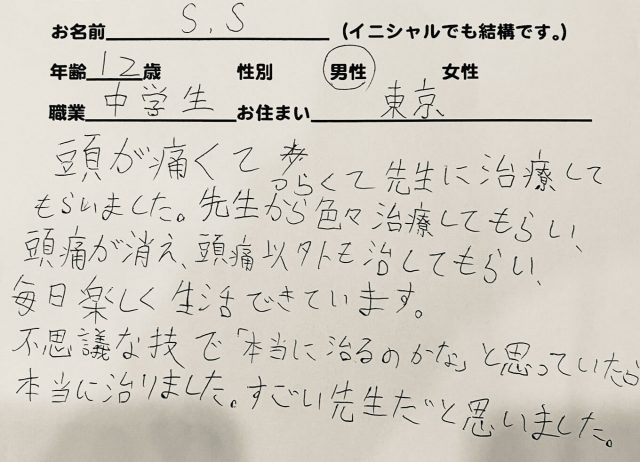 お名前 S.S (イニシャルでも結構です。)
年齢 12 歳 性別 男性 女性
職業 中学生 お住まい 東京
頭が痛くて つらくて先生に治療して
もらいました。先生から色々治療してもらい、
頭痛が消え、頭痛以外も治してもらい、
毎日楽しく生活できています。
不思議な技で「本当に治るのかな」と思っていたら
本当に治りました。すごい先生だと思いました。